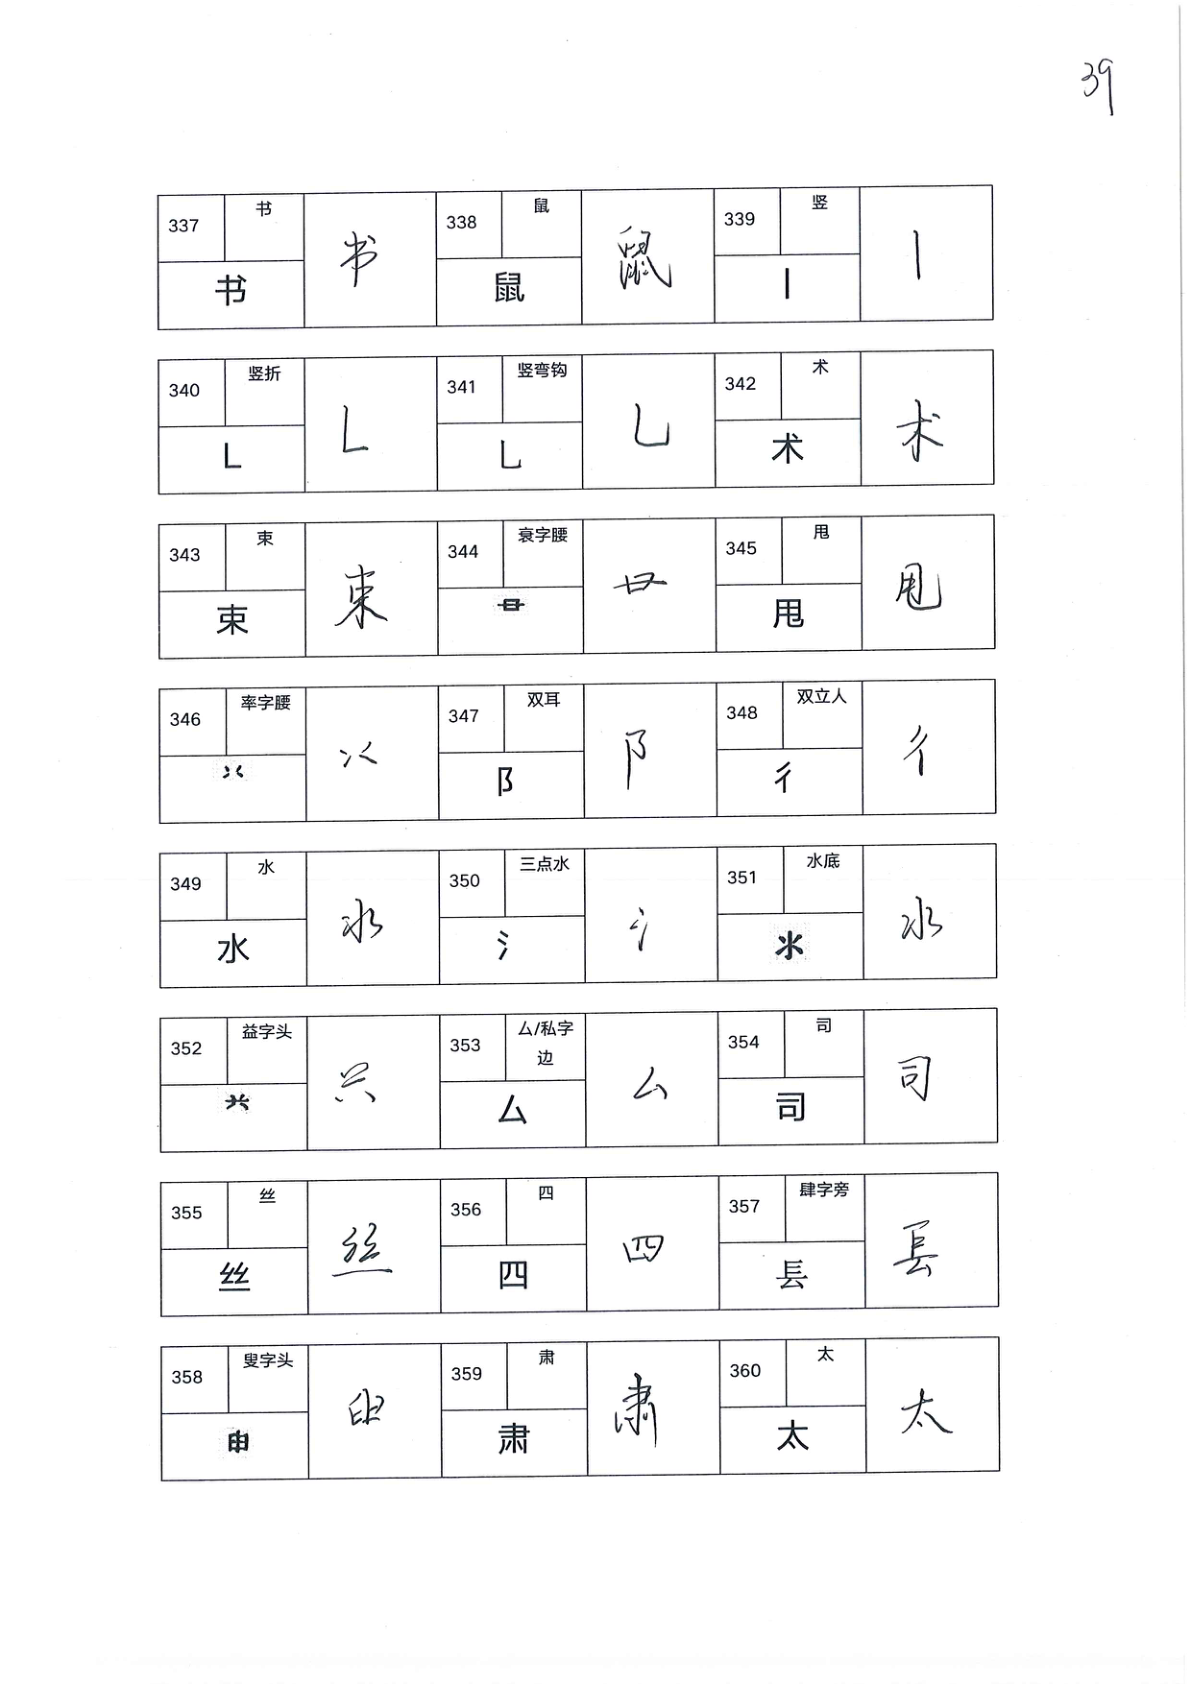 39
337 书 书 338 鼠 鼠 339 竖 丨
书 鼠 丨
340 竖折 𠃊 341 竖弯钩 乚 342 术 术
𠃊 乚 术
343 束 束 344 衰字腰 345 甩 甩
束 甩
346 率字腰 347 双耳 阝 348 双立人 彳
阝 彳
349 水 水 350 三点水 氵 351 水底 氺
水 氵 氺
352 益字头 353 厶/私字边 厶 354 司 司
厶 司
355 丝 丝 356 四 四 357 肆字旁 镸
丝 四 镸
358 叟字头 359 肃 肃 360 太 太
肃 太